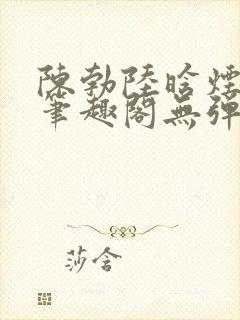 陳勃陸晗煙
筆趣閣無彈
莎含